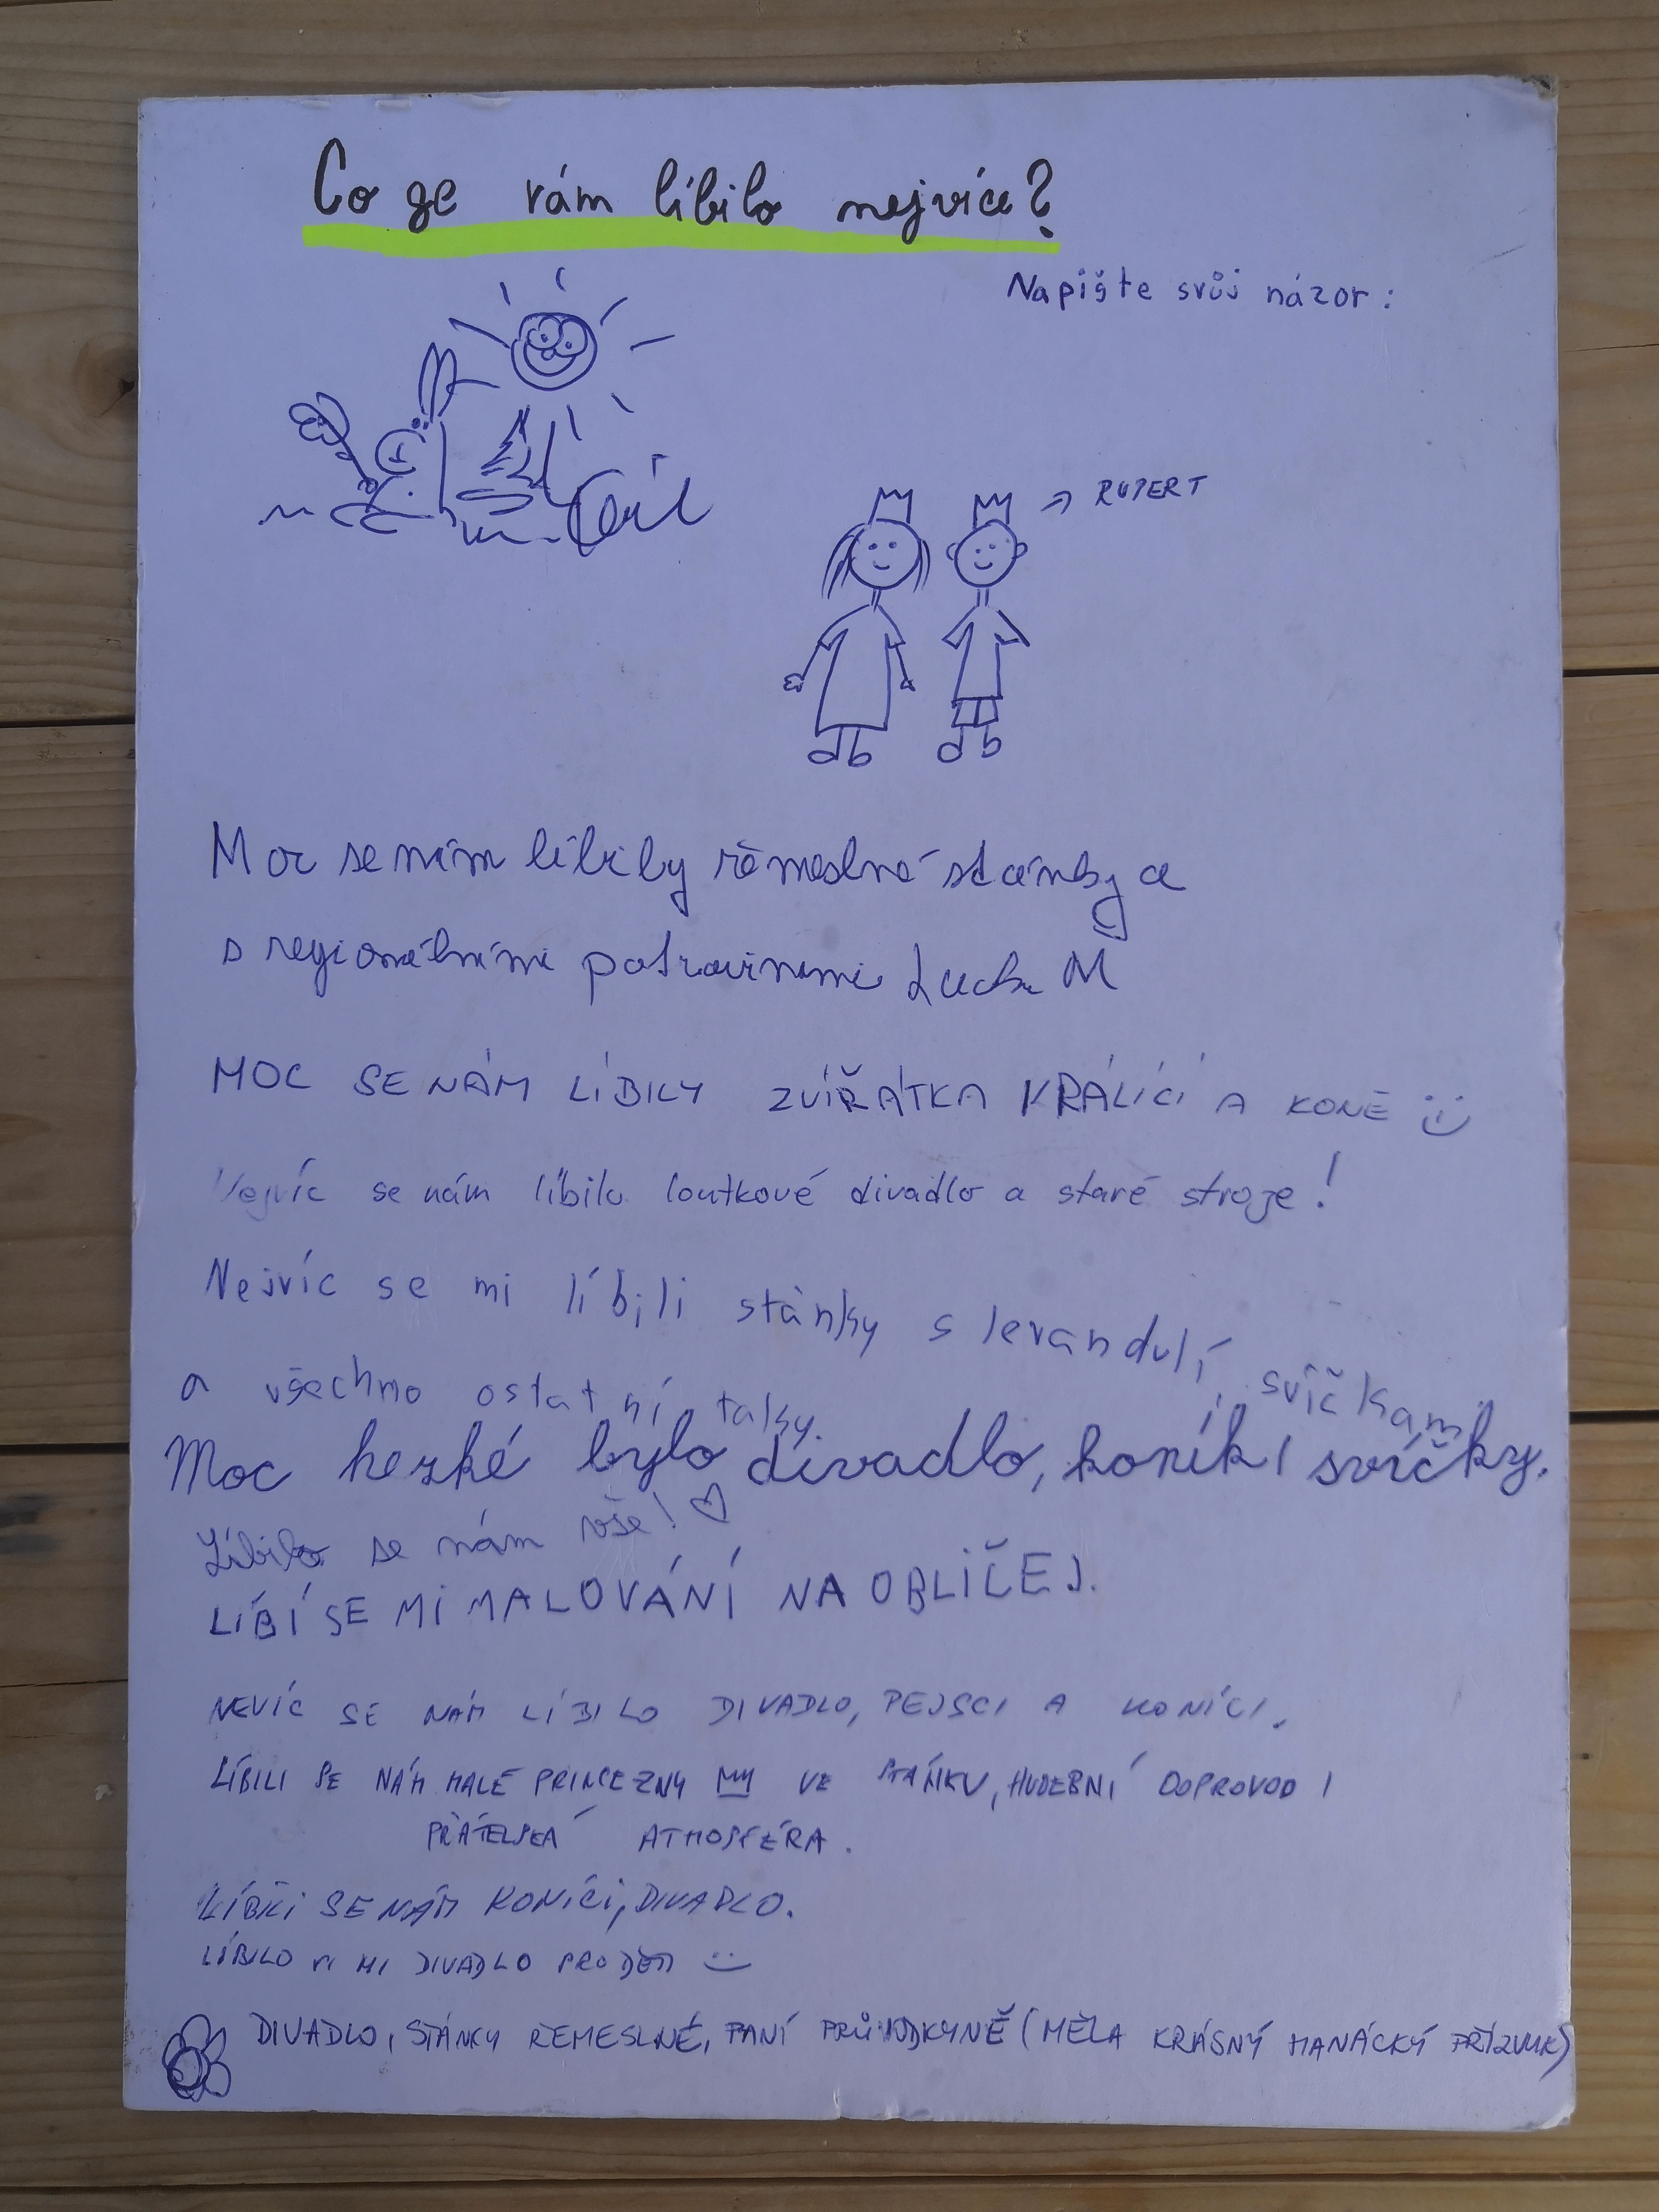 Co se vám líbilo nejvíce?
Napište svůj názor:
RUPERT
Moc se nám líbily řemeslné stánky a
s regionálními potravinami Lucka M
MOC SE NÁM LÍBILY ZVÍŘÁTKA KRÁLÍCÍ A KONĚ
Nejvíc se nám líbilo loutkové divadlo a staré stroje!
Nejvíc se mi líbili stánky s levandulí, svíčkam
a všechno ostatní taky.
Moc hezké bylo divadlo, koník, svíčky.
Líbilo se nám vše! ♡
LÍBÍ SE MI MALOVÁNÍ NA OBLIČEJ.
NEVÍC SE NÁM LÍBILO DIVADLO, PEJSCI A KONÍCI.
LÍBILI SE NÁM MALÉ PRINCEZNY VE STÁNKU, HUDEBNÍ DOPROVOD,
PŘÁTELSKÁ ATMOSFÉRA.
LÍBILI SE NÁM KONÍCI, DIVADLO.
LÍBILO MI DIVADLO PRO DĚTI
DIVADLO, STÁNKY ŘEMESLNÉ, PANÍ PRŮVODKYNĚ (MĚLA KRÁSNÝ HANÁCKÝ PŘÍZVUK)